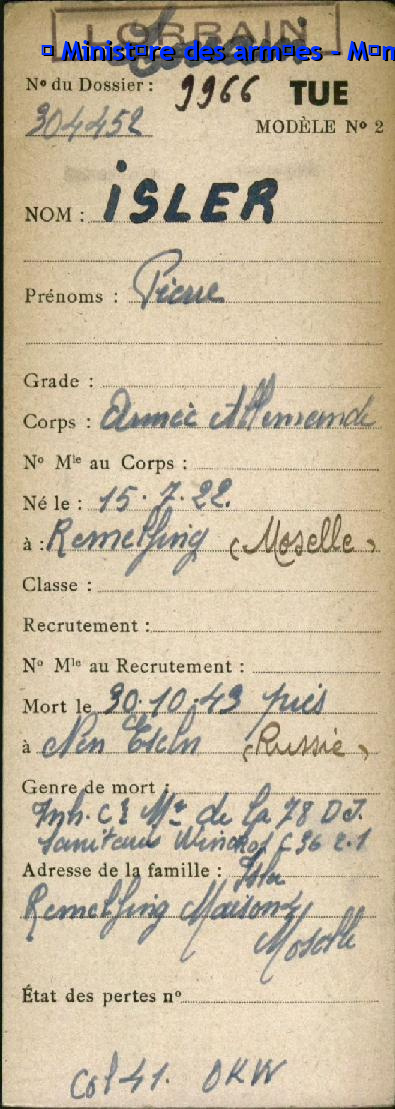 LORRAIN
© Ministère des armées - Mém
N° du Dossier : 9966 TUE
304452
MODÈLE N° 2
NOM : ISLER
Prénoms : Pierre
Grade :
Corps : Armée Allemande
N° Mle au Corps :
Né le : 15.7.22.
à : Remelfing (Moselle)
Classe :
Recrutement :
N° Mle au Recrutement :
Mort le 30.10.43 près
à (Russie)
Genre de mort :
Inh. de la 78 D.I.
Adresse de la famille :
Remelfing Maison
Moselle
État des pertes n°
Col 41. OKW